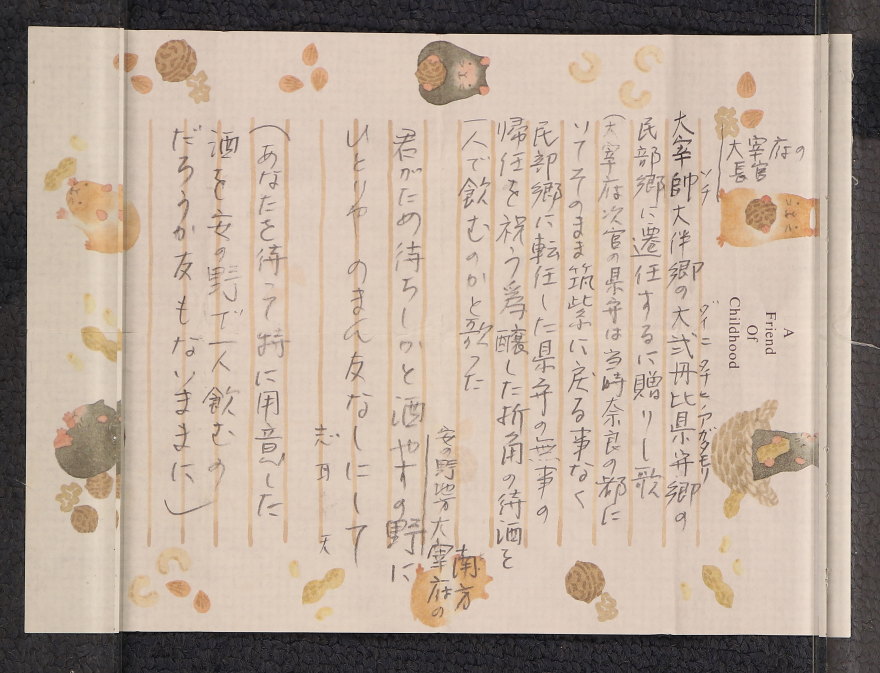 A
Friend
Of
Childhood
大宰府の
長官
ソチ
ダイニ タヂヒノアガタモリ
大宰帥大伴郷の大弐丹比県守郷の
民部郷に遷任するに贈りし歌
(大宰府次官の県守は当時奈良の都に
いてそのまま筑紫に戻る事なく
民部郷に転任した県守の無事の
帰任を祝う為醸した折角の待酒を
一人で飲むのかと歌った
君がため待ちしかと酒やすの野に
ひとりやのまん友なしにして
安の野地方大宰府の
南方
(あなたを待って特に用意した
酒を安の野で一人飲むの
だろうか友もないままに)